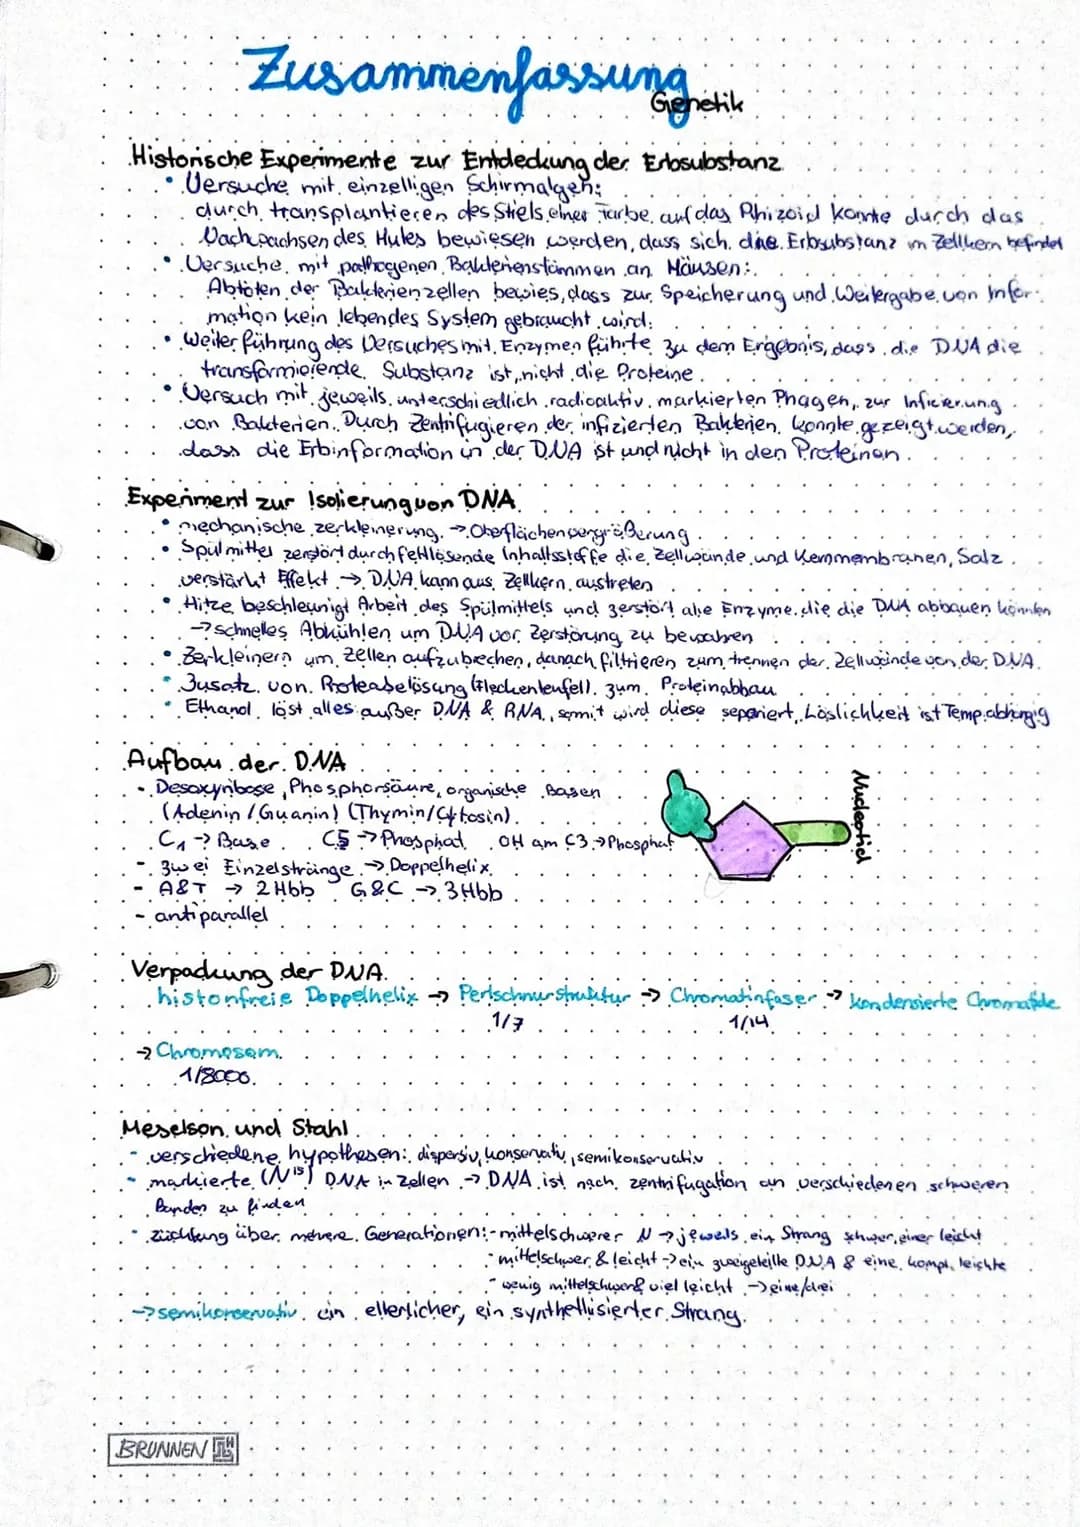 Zusammenfassung
Genetik
Historische Experimente zur Entdeckung der Erbsubstanz
• Versuche mit einzelligen Schirmalgen:
durch transplantieren des Stiels einer Farbe auf das Rhizoid konnte durch das
Nachwachsen des Hutes bewiesen werden, dass sich die Erbsubstanz im Zellkern befindet
• Versuche mit pathogenen Bakterienstämmen an Mäusen:
Abtöten der Bakterienzellen bewies, dass zur Speicherung und Weitergabe von Infor-
mation kein lebendes System gebraucht wird.
• Weiterführung des Versuches mit Enzymen führte zu dem Ergebnis, dass die DNA die
transformierende Substanz ist, nicht die Proteine.
• Versuch mit jeweils unterschiedlich radioaktiv markierten Phagen, zur Inficierung
von Bakterien. Durch Zentrifugieren der infizierten Bakterien konnte gezeigt werden,
dass die Erbinformation in der DNA ist und nicht in den Proteinen.
Experiment zur Isolierung von DNA
• mechanische zerkleinerung → Oberflächenvergrößerung
• Spülmittel zerstört durch fettlösende Inhaltsstoffe die Zellwände und Kernmembranen, Salz
verstärkt Effekt → DNA kann aus Zellkern austreten
• Hitze beschleunigt Arbeit des Spülmittels und zerstört alle Enzyme die die DNA abbauen könnten
→ schnelles Abkühlen um DNA vor Zerstörung zu bewahren
• Zerkleinern um Zellen aufzubrechen, danach filtrieren zum trennen der Zellwände von der DNA.
• Zusatz von Proteaselösung (Fleckenteufel) zum Proteinabbau
• Ethanol löst alles außer DNA & RNA, somit wird diese separiert, Löslichkeit ist Temp.abhängig
Aufbau der DNA
- Desoxyribose, Phosphorsäure, organische Basen
(Adenin/Guanin) (Thymin/Cytosin)
C1 → Base C5 → Phosphat OH am C3 → Phosphat
- zwei Einzelstränge → Doppelhelix
- A&T → 2Hbb G&C → 3Hbb
- antiparallel
Nucleotid
Verpackung der DNA
histonfreie Doppelhelix → Perlschnurstruktur → Chromatinfaser → kondensierte Chromatide
1/7 1/14
→ Chromosom
1/8000
Meselson und Stahl
- verschiedene hypothesen: dispersiv, konservativ, semikonservativ
- markierte (N15) DNA in Zellen → DNA ist nach zentrifugation an verschiedenen schweren
Banden zu finden
- züchtung über mehrere Generationen: - mittelschwerer N → jeweils ein Strang schwer, einer leicht
- mittelschwer & leicht → ein zweigeteilte DNA & eine kompl. leichte
- wenig mittelschwer & viel leicht → eine/drei
→ semikonservativ ein ellerlicher, ein synthetisierter Strang.
BRUNNEN